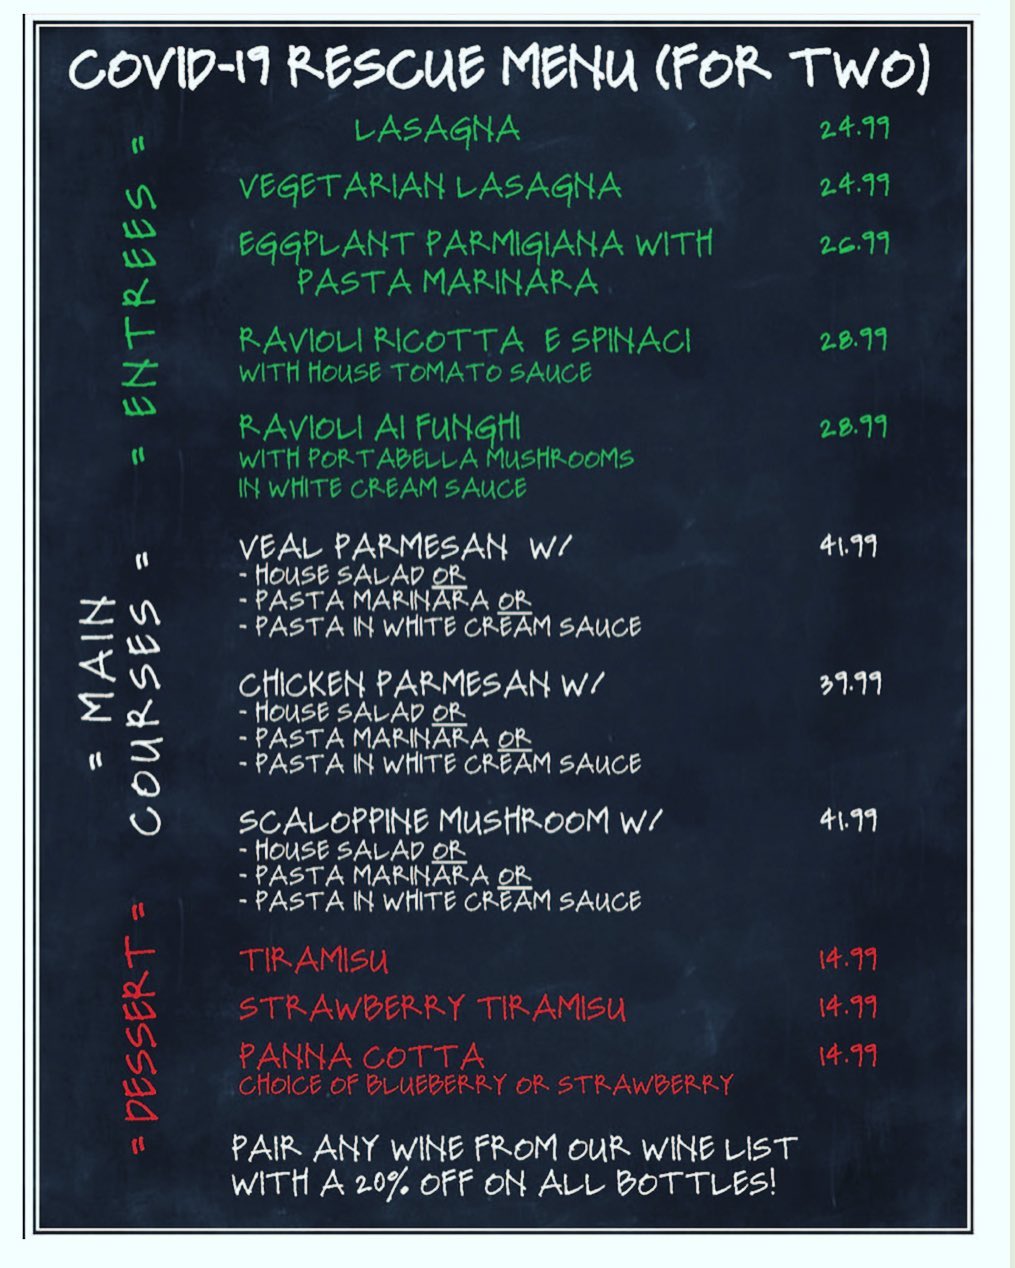 COVID-19 RESCUE MENU (FOR TWO)
= ENTREES =
LASAGNA 24.99
VEGETARIAN LASAGNA 24.99
EGGPLANT PARMIGIANA WITH 26.99
PASTA MARINARA
RAVIOLI RICOTTA E SPINACI 28.99
WITH HOUSE TOMATO SAUCE
RAVIOLI AI FUNGHI 28.99
WITH PORTABELLA MUSHROOMS
IN WHITE CREAM SAUCE
= MAIN
COURSES =
VEAL PARMESAN W/ 41.99
- HOUSE SALAD OR
- PASTA MARINARA OR
- PASTA IN WHITE CREAM SAUCE
CHICKEN PARMESAN W/ 39.99
- HOUSE SALAD OR
- PASTA MARINARA OR
- PASTA IN WHITE CREAM SAUCE
SCALOPPINE MUSHROOM W/ 41.99
- HOUSE SALAD OR
- PASTA MARINARA OR
- PASTA IN WHITE CREAM SAUCE
= DESSERT =
TIRAMISU 14.99
STRAWBERRY TIRAMISU 14.99
PANNA COTTA 14.99
CHOICE OF BLUEBERRY OR STRAWBERRY
PAIR ANY WINE FROM OUR WINE LIST
WITH A 20% OFF ON ALL BOTTLES!